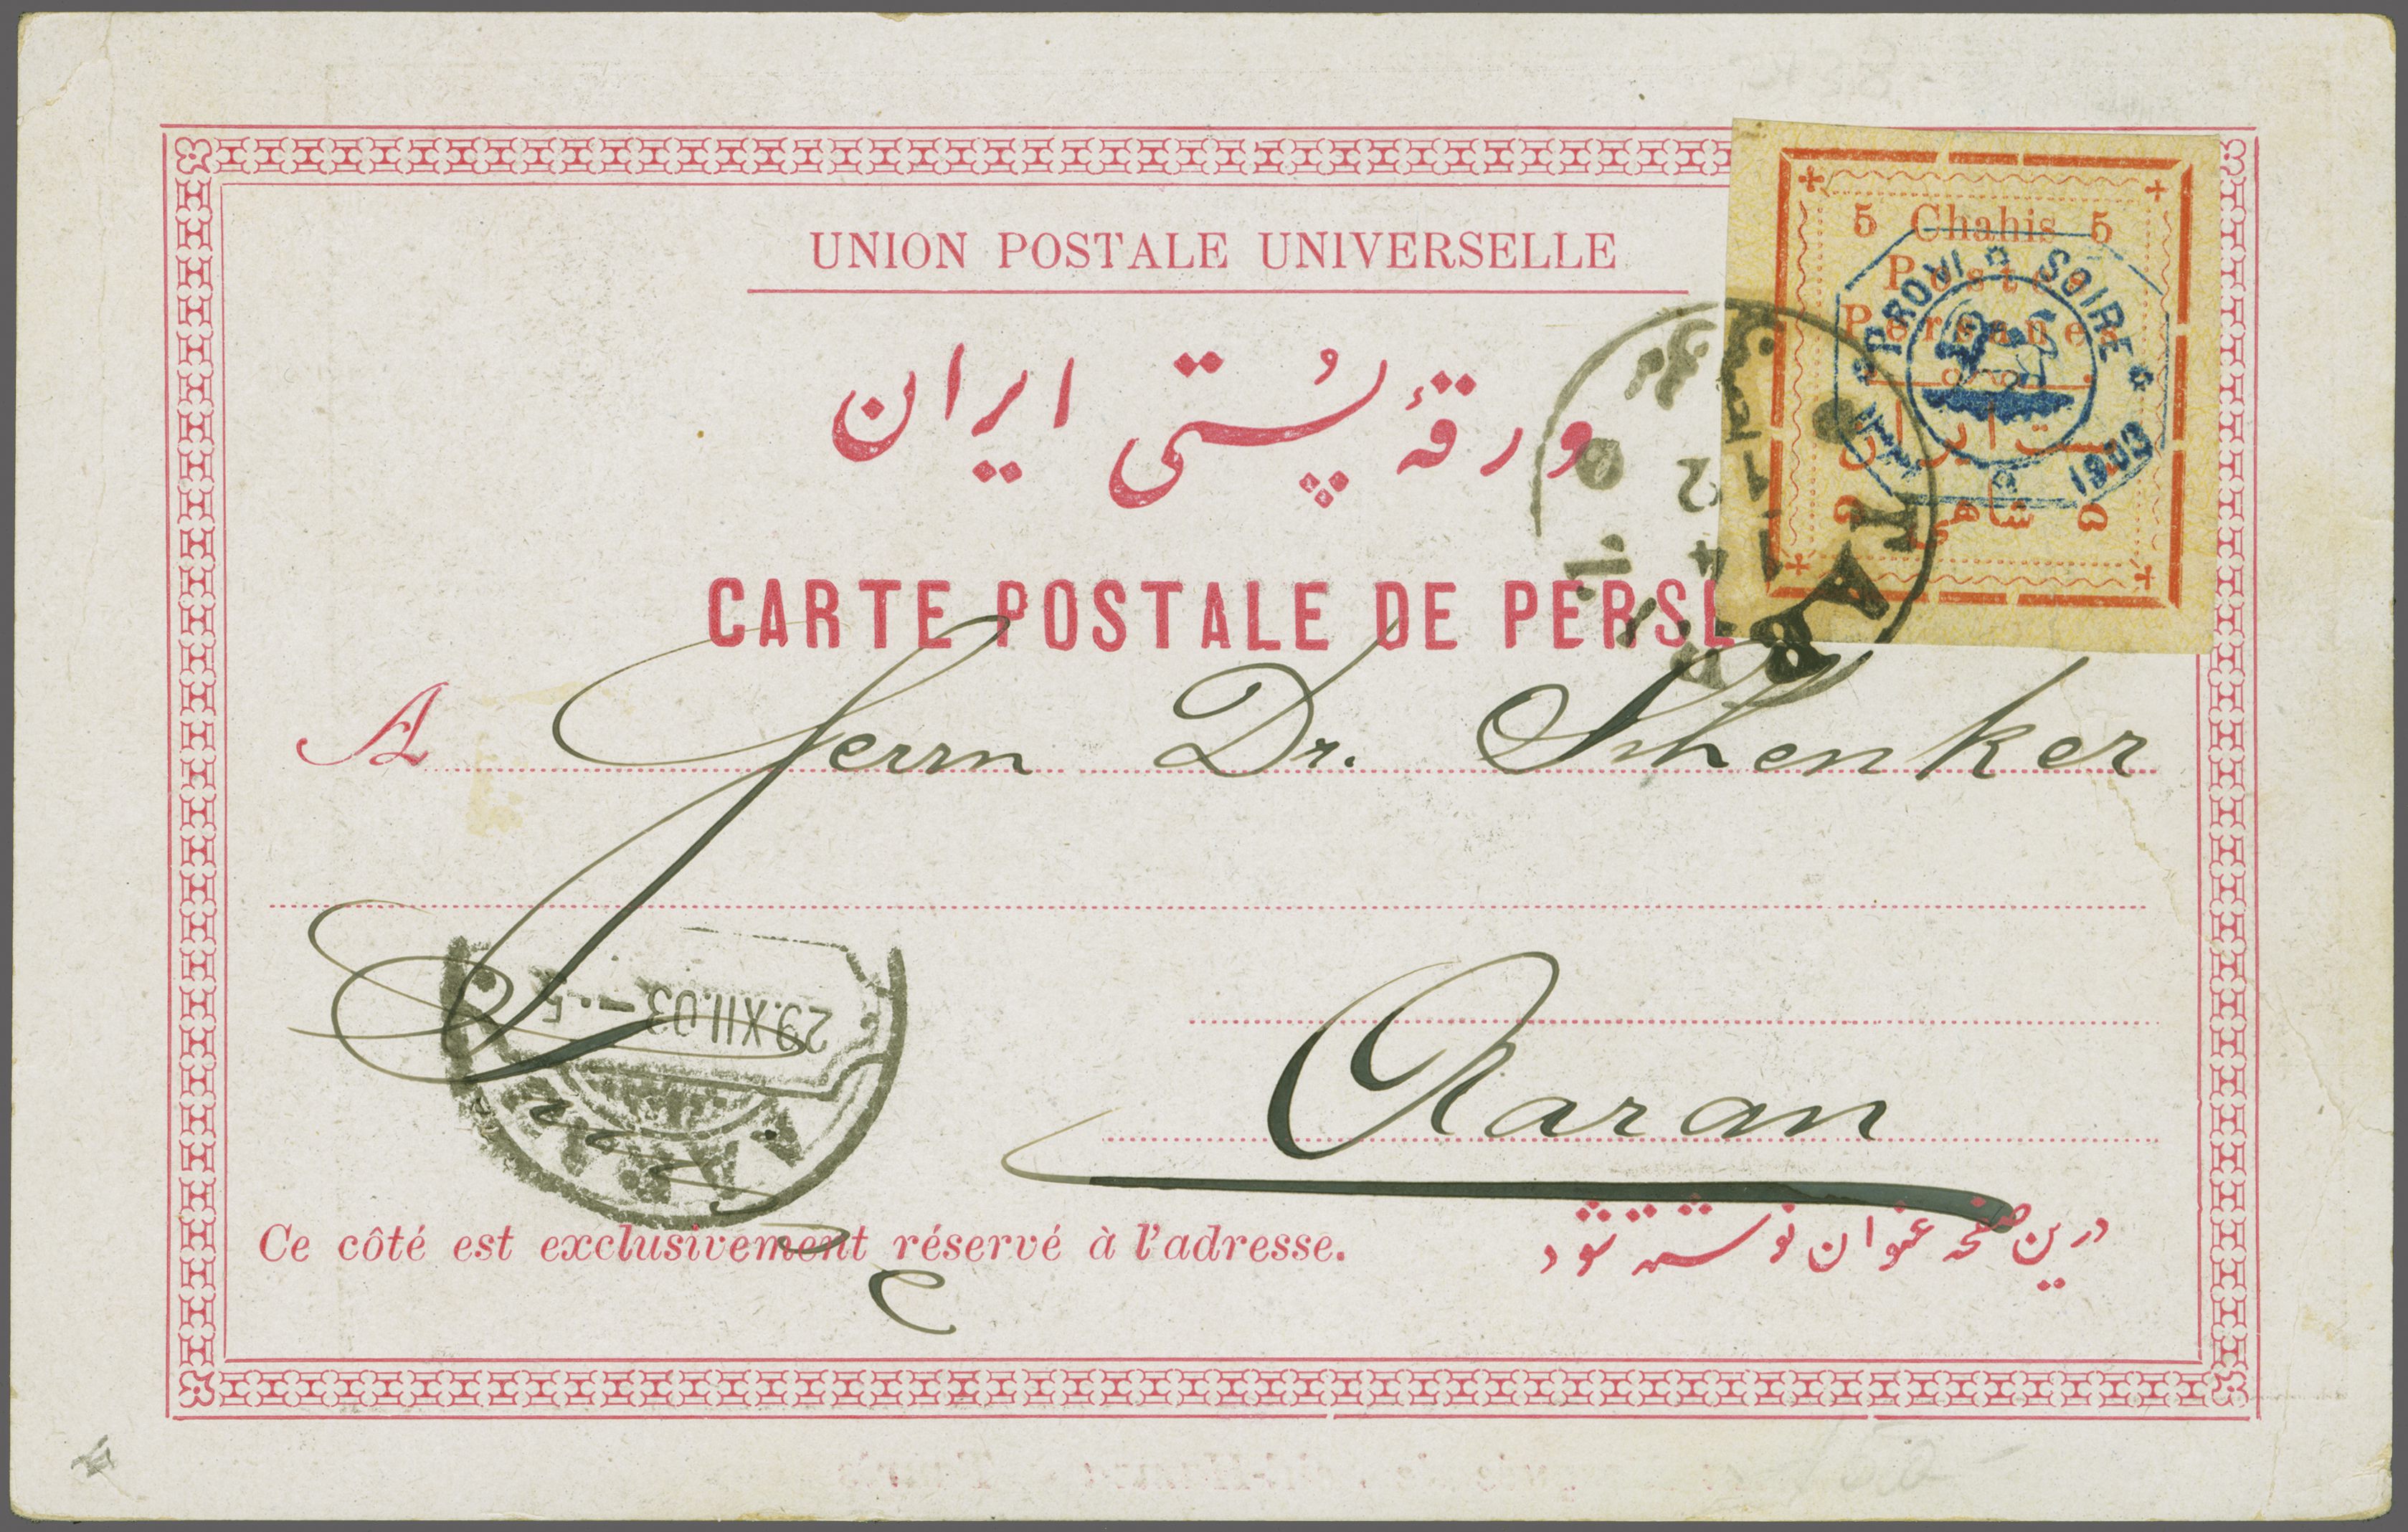 UNION POSTALE UNIVERSELLE
ورقهٔ پُستی ایران
CARTE POSTALE DE PERSE
5 Chahis 5
Postes
Persanes
پست ایران
۵ شاهی ۵
PROVISOIRE
1319
1902
TAB
12
14
A Herrn Dr. Schenker
Aarau
29.XII.03 - 5
Ce côté est exclusivement réservé à l'adresse.
درین صفحه عنوان نوشته شود